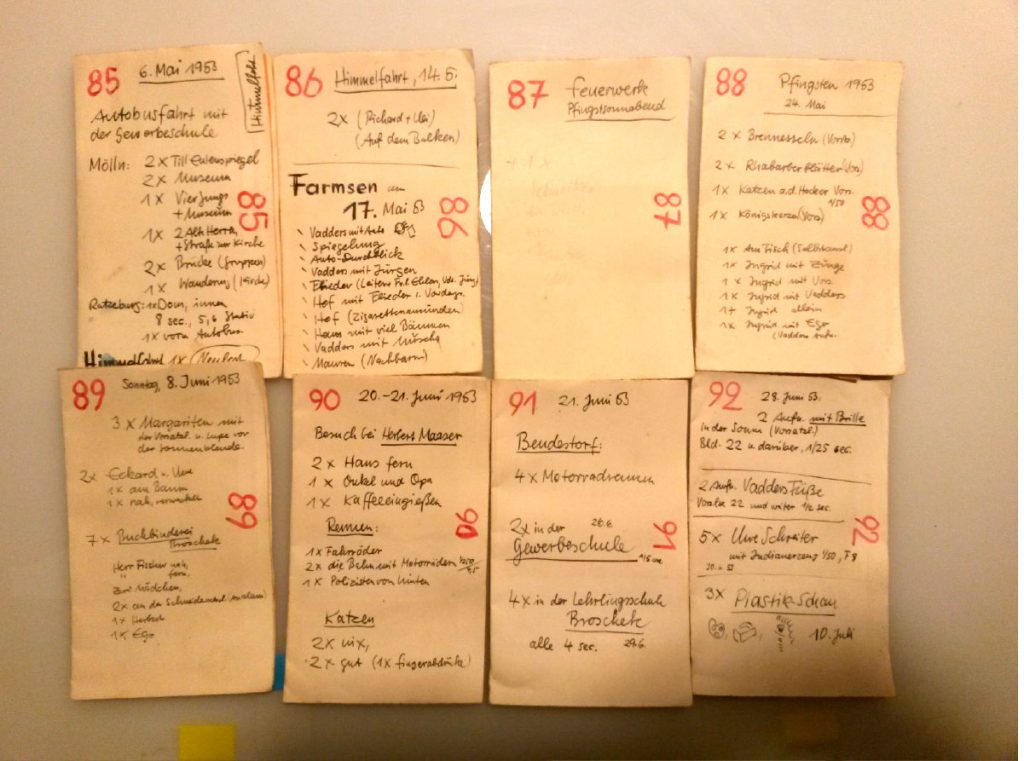 85 6. Mai 1953
Himmelfahrt
Autobusfahrt mit
der Gewerbeschule
Mölln: 2x Till Eulenspiegel
2x Museum
1x Vier Jungs
+ Museum
85
1x 2 Alte Herrn,
+ Straße zur Kirche
2x Brücke (Gruppen)
1x Wanderung (Kirche)
Ratzeburg: 1x Dom, innen
8 sec., 5,6 Stativ
1x vorm Autobus
Himmelfahrt 1x
86 Himmelfahrt, 14.5.
2x (Richard + Uei)
(Auf dem Balken)
Farmsen am
17. Mai 53
86
Vadders mit Auto
Spiegelung
Auto-Durchblick
Vadders mit Jürgen
Flieder (Leitern
Hof mit Flieder i. Vordergr.
Hof (Zigarettenanzünden)
Haus mit viel Bäumen
Vadders mit Muscha
Mauren (Nachbarn)
87 Feuerwerk
Pfingstsonnabend
87
88 Pfingsten 1953
24. Mai
2x Brennesseln (Vors.)
2x Rhabarber blätter (Vors)
1x Katzen a.d. Hocker Vors.
1/50
1x Königskerzen (Vors)
88
1x Am Tisch (Selbstausl.)
1x Ingrid mit Zunge
1x Ingrid mit Vors.
1x Ingrid mit Vadders
1+ Ingrid allein
1x Ingrid mit Ego
(Vadders Aufn.
89 Sonntag, 8. Juni 1953
3x Margariten mit
der Vorsatzl. u. Lupe vor
der Sonnenblende.
2x Eckard u. Uwe
1x am Baum
1x nah, verwackelt
89
7x Buchbinderei
Broschek
Herr Fischer nah,
" fern,
Zwei Mädchen,
2x an der Schneidemasch.
1x Herbert
1x Ego
90 20.-21. Juni 1953
Besuch bei Herbert Maaser
2x Haus fern
1x Onkel und Opa
1x Kaffeeeingießen
Rennen:
90
1x Fahrräder
2x die Bahn mit Motorrädern 1/250
1x Polizisten von hinten
Katzen
2x nix,
2x gut (1x fingerabdrücke)
91 21. Juni 53
Bendestorf:
4x Motorradrennen
2x in der 26.6.
Gewerbeschule
1/5 sec
91
4x in der Lehrlingsschule
Broschek
alle 4 sec. 29.6.
92 28. Juni 53.
2 Aufn. mit Brille
in der Sonne (Vorsatzl.)
Bld. 22 u darüber, 1/25 sec.
2 Aufn. Vadders Füße
Vorslse 22 und weiter 1/2 sec.
92
5x Uwe Schreiter
mit Indianerzeug 1/50, F 8
3x Plastik-Schau
10. Juli